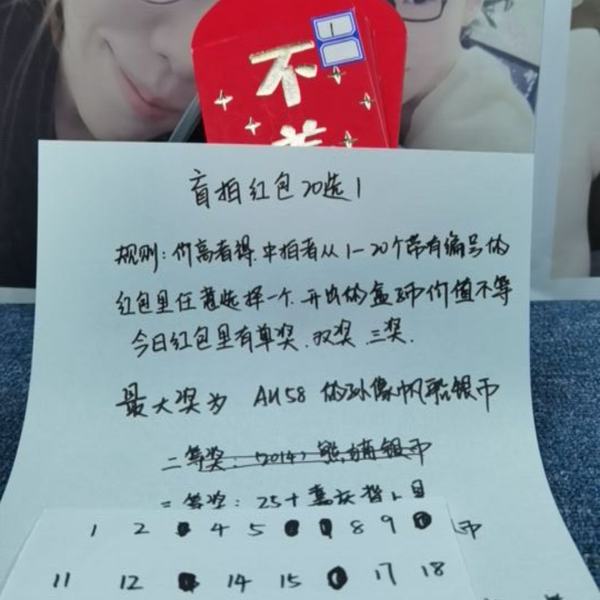 1
不
盲拍红包20选1
规则:价高者得.中拍者从1-20个带有编号的
红包里任意选择一个.开出的盒子币价值不等
今日红包里有单奖.双奖.三奖.
最大奖为 AU58 的孙像帆船银币
二等奖:(2014)熊猫银币
三等奖:25
1 2 4 5 8 9
币
11 12 14 15 17 18